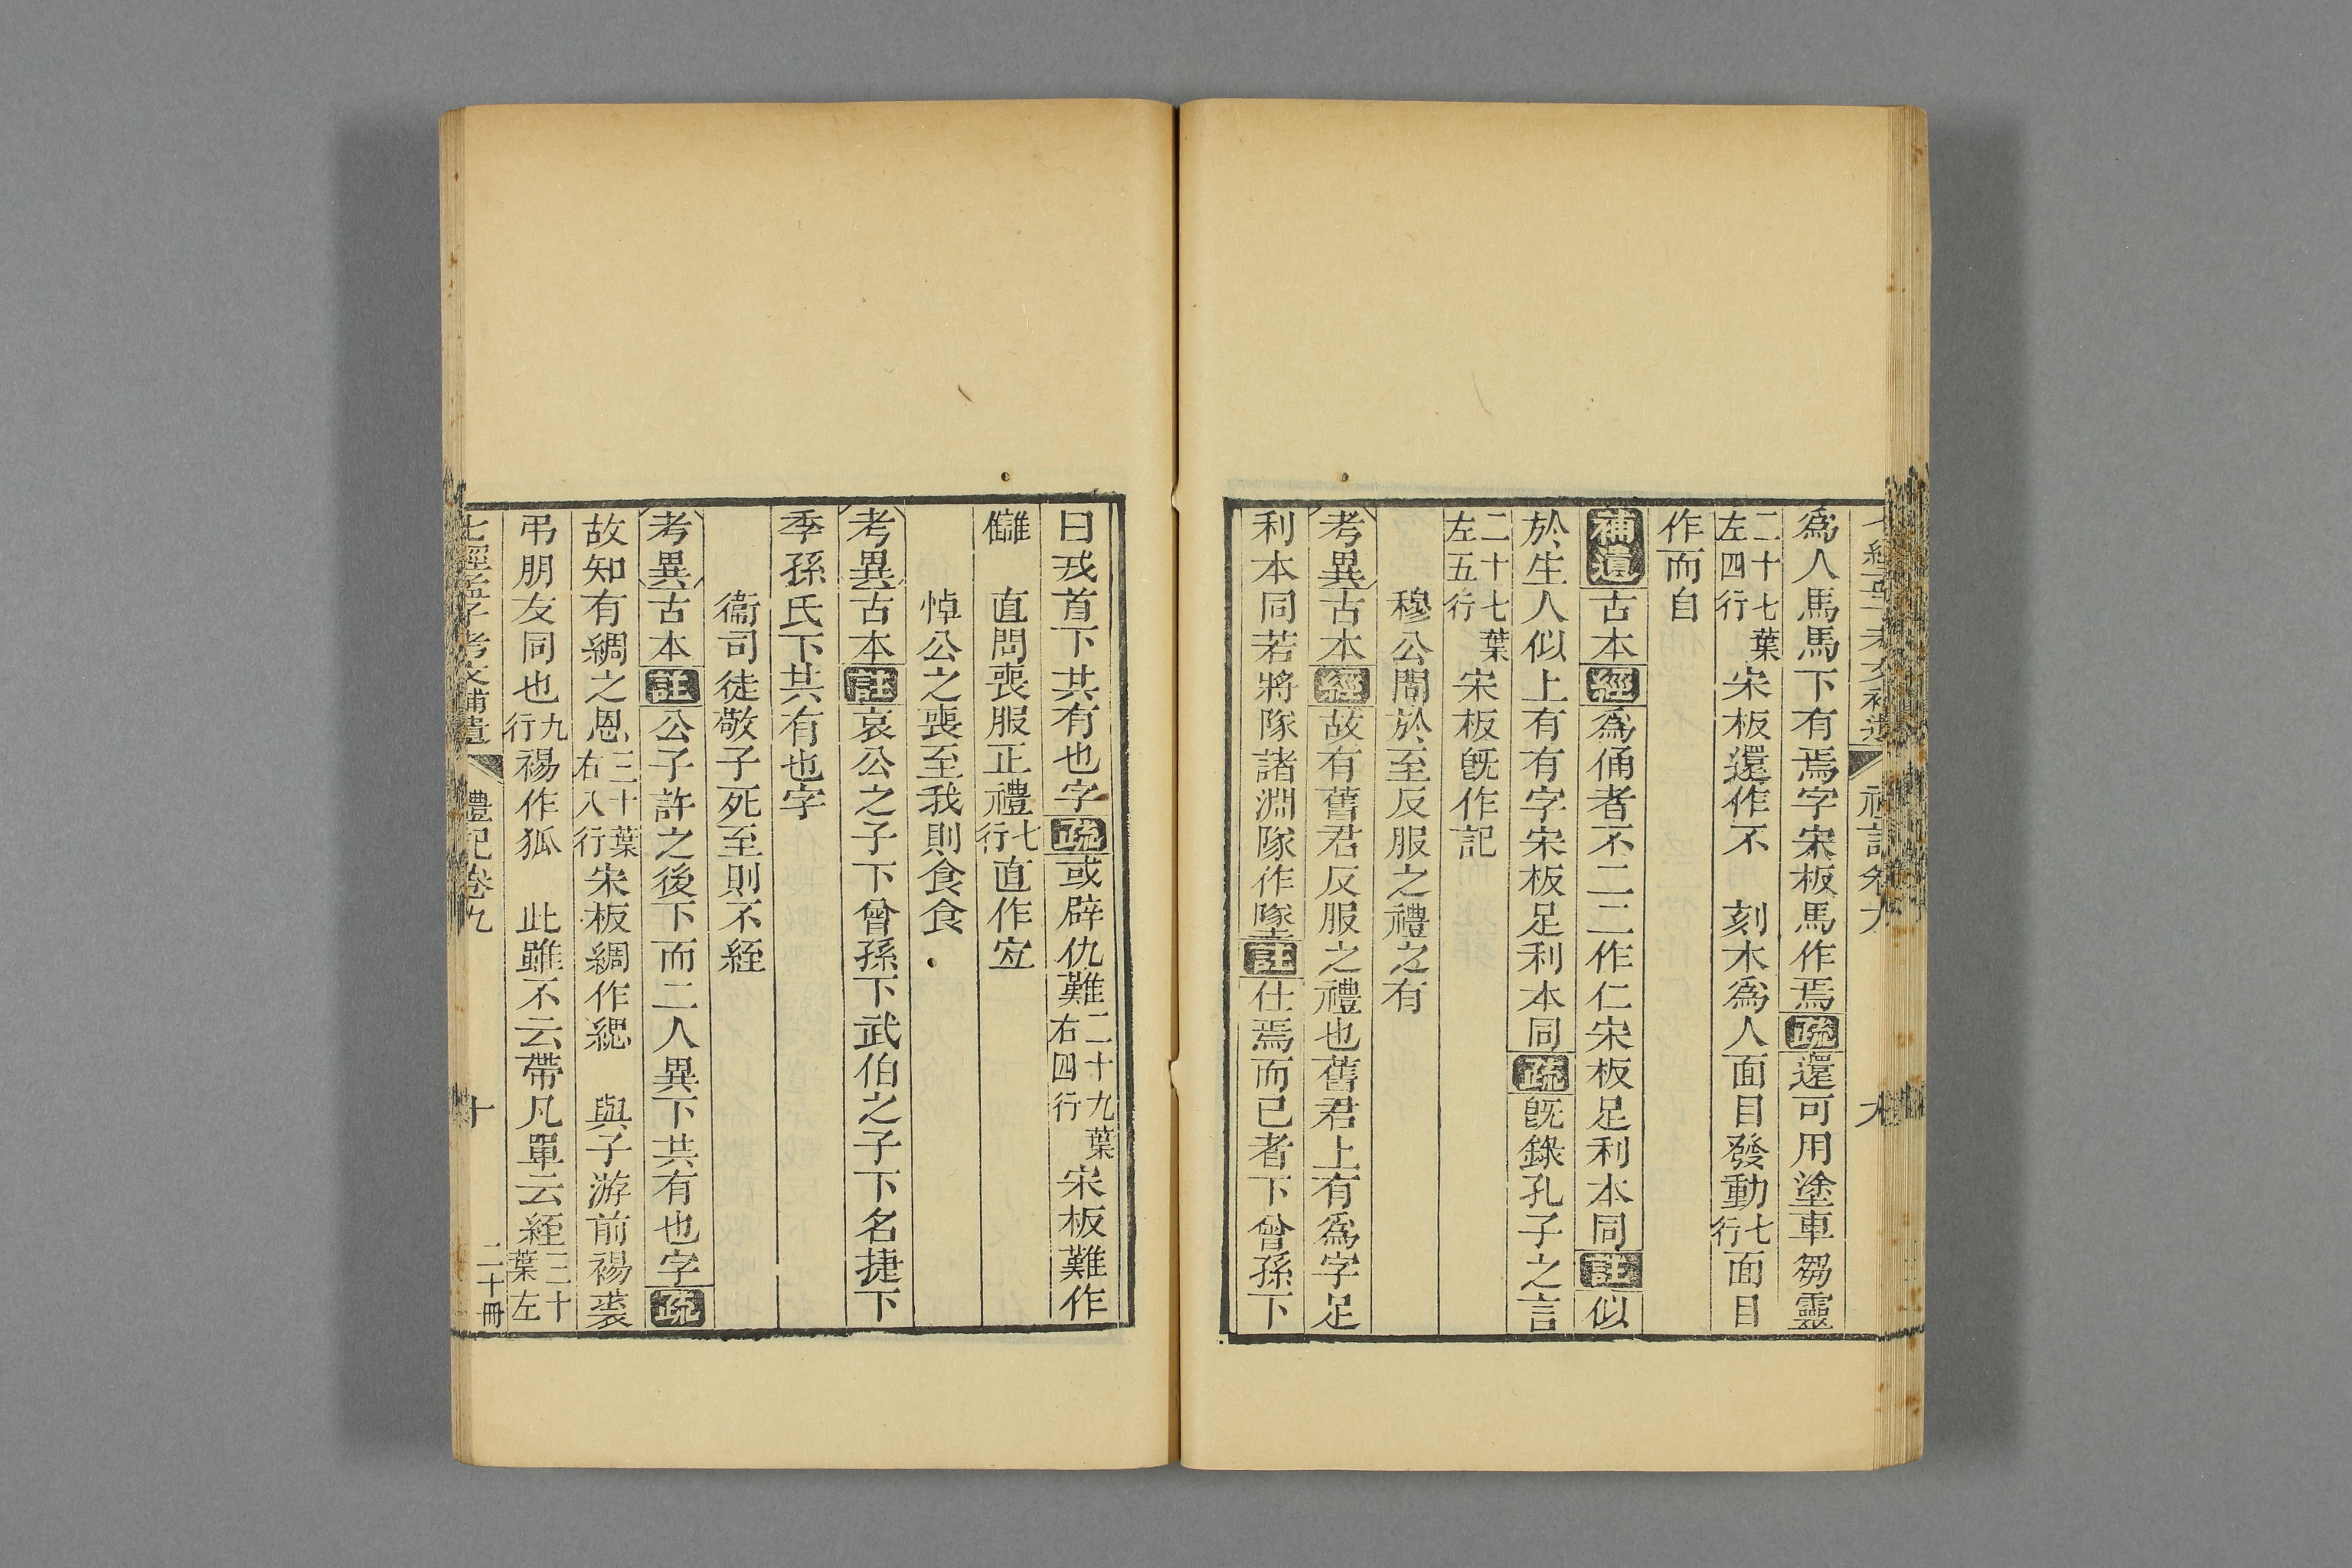 爲人馬馬下有焉字宋板馬作焉疏還可用塗車芻靈
二十七葉左四行宋板還作不　刻木爲人面目發動七行面目
作而自
補遺古本經爲俑者不二二作仁宋板足利本同註似
於生人似上有有字宋板足利本同疏旣錄孔子之言
二十七葉左五行宋板旣作記
穆公問於至反服之禮之有
考異古本經故有舊君反服之禮也舊君上有爲字足
利本同若將隊諸淵隊作墜註仕焉而已者下曾孫下
曰戎首下共有也字疏或辟仇難二十九葉右四行宋板難作
讎　直問喪服正禮七行直作㝎
悼公之喪至我則食食
考異古本註哀公之子下曾孫下武伯之子下名捷下
季孫氏下共有也字
衞司徒敬子死至則不絰
考異古本註公子許之後下而二人異下共有也字疏
故知有綢之恩三十葉右八行宋板綢作緦　與子游前裼裘
弔朋友同也九行裼作狐　此雖不云帶凡單云絰三十葉左
七經孟子考文補遺　禮記卷九　十　二十冊